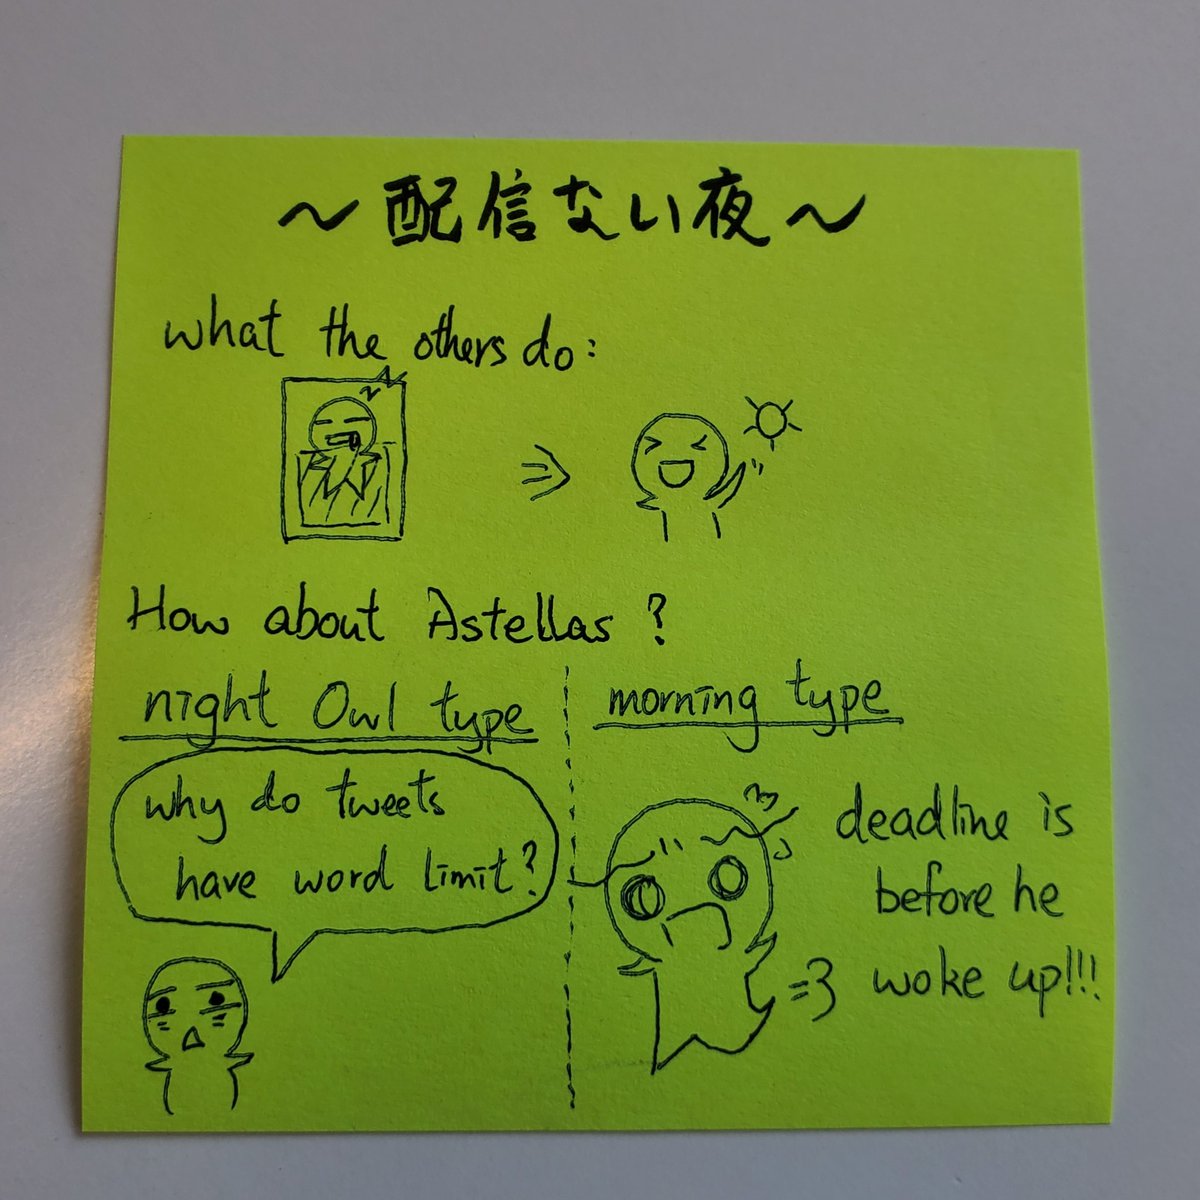 ～配信ない夜～
what the others do:
How about Astellas?
night Owl type
why do tweets
have word limit?
morning type
deadline is
before he
woke up!!!